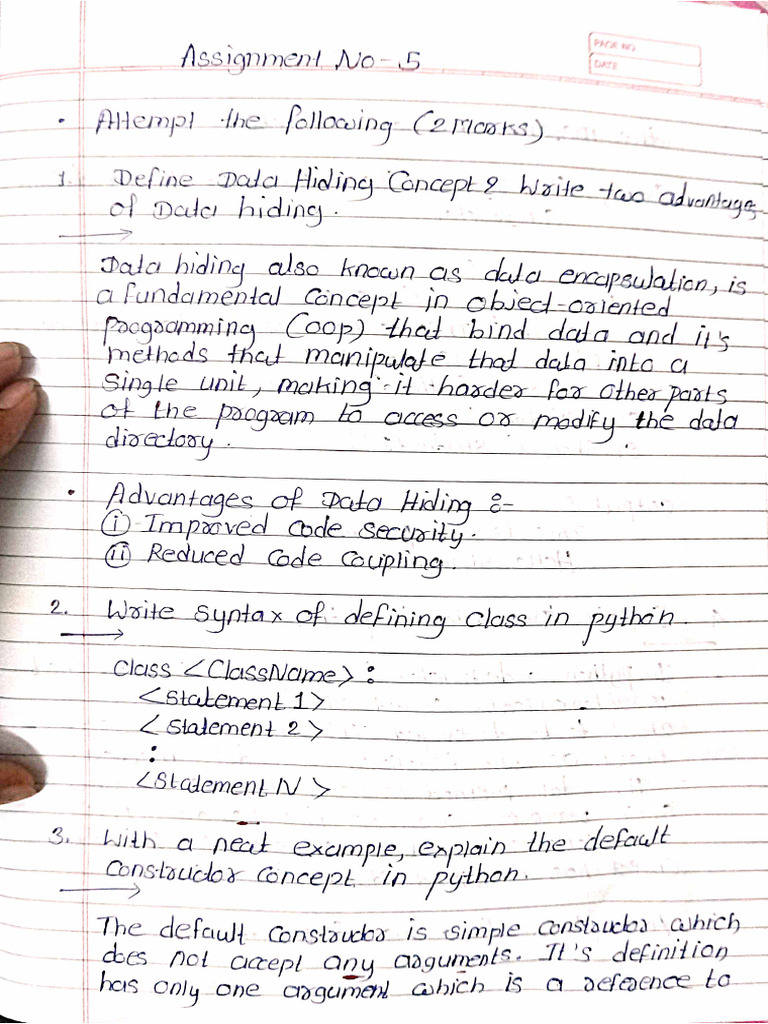 Assignment No - 5
PAGE NO
DATE
• Attempt the following (2 Marks)
1. Define Data Hiding Concept? Write two advantage
of Data hiding.
→
Data hiding also known as data encapsulation, is
a fundamental concept in object-oriented
programming (OOP) that bind data and it's
methods that manipulate that data into a
single unit, making it harder for other parts
of the program to access or modify the data
directory.
• Advantages of Data Hiding :-
(i) Improved code security.
(ii) Reduced Code Coupling.
2. Write syntax of defining class in python.
→
Class <ClassName> :
<Statement 1>
<Statement 2>
:
<Statement N>
3. With a neat example, explain the default
constructor concept in python.
→
The default constructor is simple constructor which
does not accept any arguments. It's definition
has only one argument which is a reference to